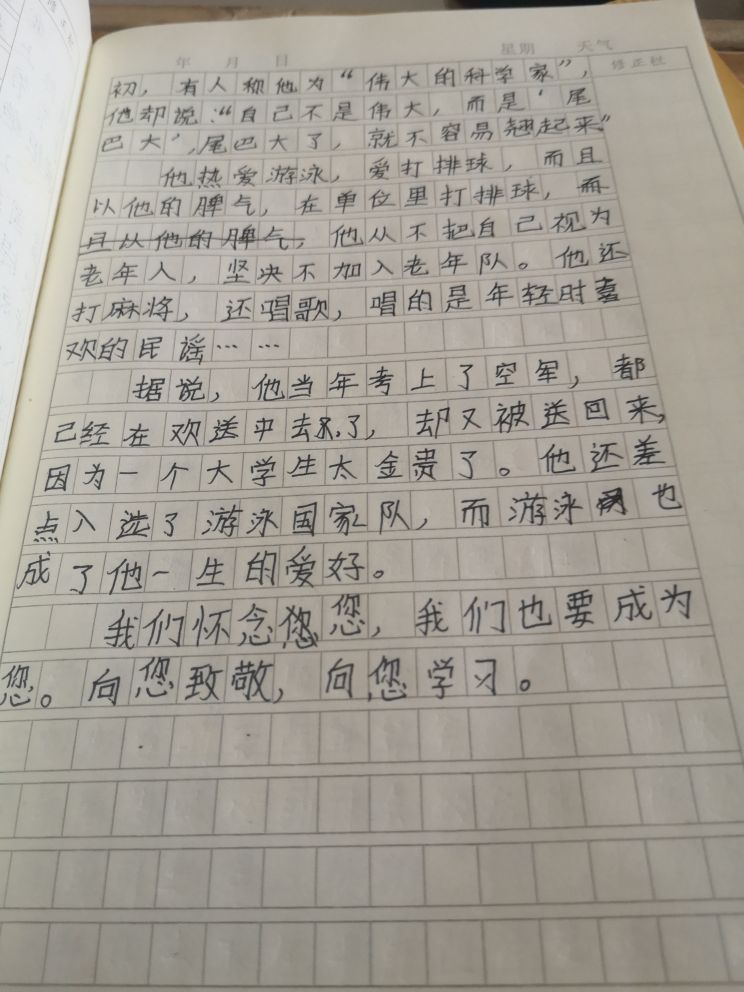 年 月 日 星期 天气
修正栏
初，有人称他为“伟大的科学家”，
他却说：“自己不是伟大，而是‘尾
巴大’，尾巴大了，就不容易翘起来”
他热爱游泳，爱打排球，而且
以他的脾气，在单位里打排球，而
且从他的脾气，他从不把自己视为
老年人，坚决不加入老年队。他还
打麻将，还唱歌，唱的是年轻时喜
欢的民谣……
据说，他当年考上了空军，都
己经在欢送中去了，却又被送回来，
因为一个大学生太金贵了。他还差
点入选了游泳国家队，而游泳也
成了他一生的爱好。
我们怀念您您，我们也要成为
您。向您致敬，向您学习。